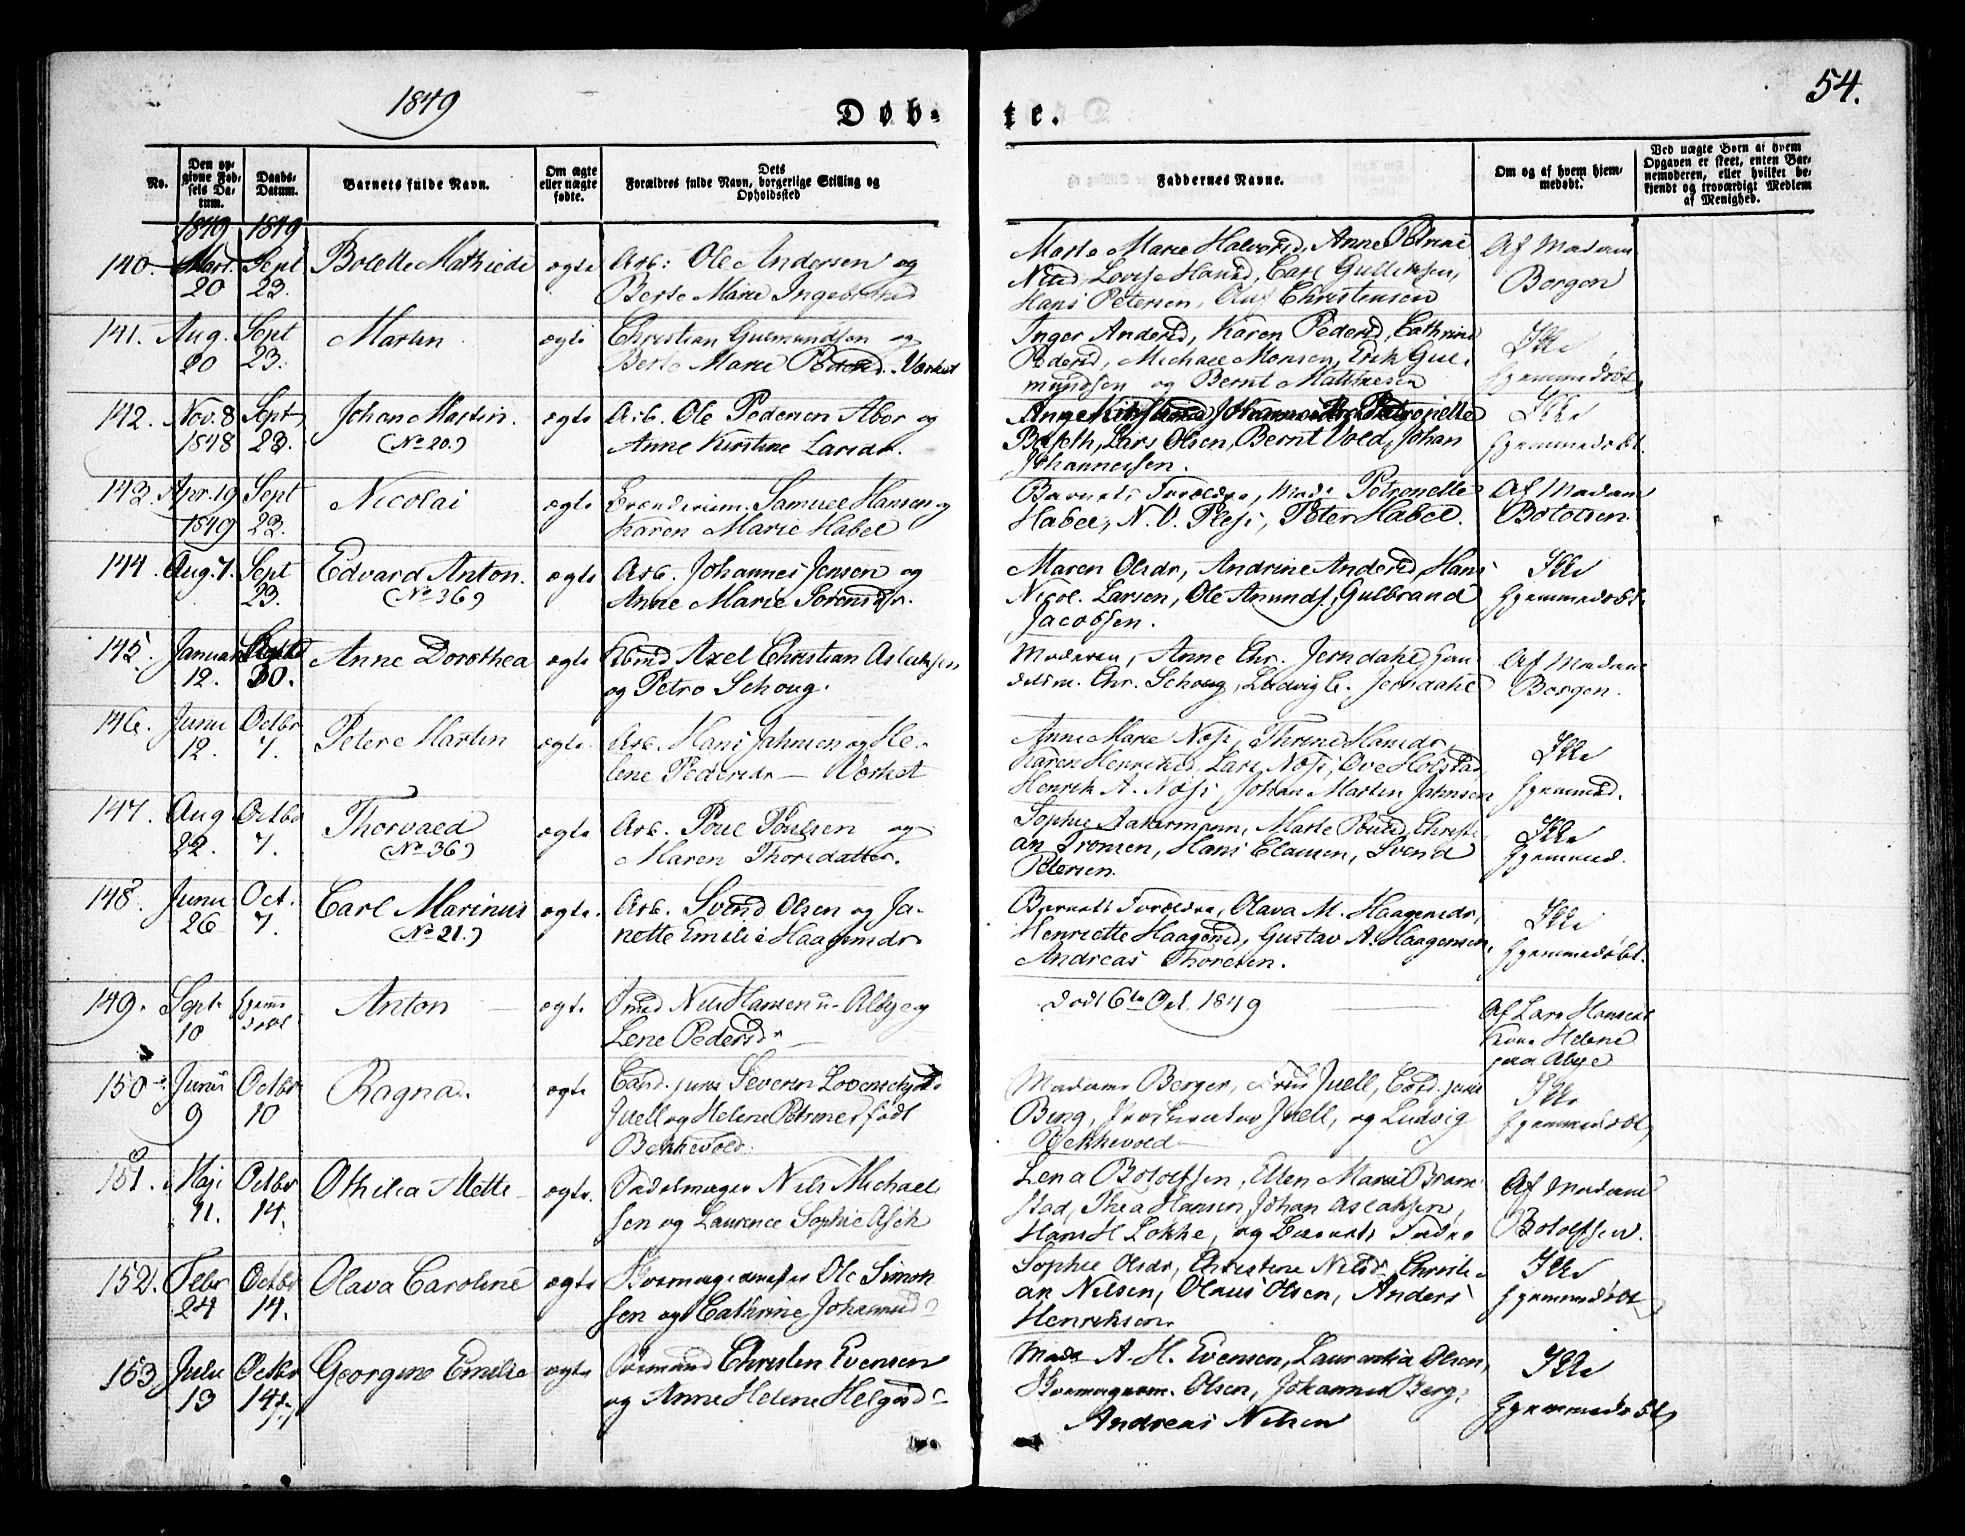 1849
Døb-
te.
54.
No.
Den op-
givne Fød-
sels Da-
tum.
Daabs-
Datum.
Barnets fulde Navn.
Om ægte
eller uægte
fødte.
Dets
Forældres fulde Navn, borgerlige Stilling og
Opholdssted
Faddernes Navne.
Om og af hvem hjem-
medøbt.
Ved uægte Børn af hvem
Opgaven er skeet, enten Bar-
nemoderen, eller hvilket be-
kjendt og troværdigt Medlem
af Menighed.
1849 1849
140. Mart. Sept Bolette Mathilde ægte Arb: Ole Andersen og
20 23. Berte Marie
Marte Marie Halvorsd, Anne Petrine
Nilsd Lovise Hansd, Carl Gulliksen,
Hans Petersen, Christensen
Af Madam
Borgen
141. Aug. Sept Martin ægte Christian Gulmundsen og
20 23. Berte Marie Pedersd. Værket
Inger Andersd, Karen Pedersd, Cathrine
Pedersd, Michael Monsen, Erik Gul-
mundsen og Bernt Mathiesen
Ikke
hjemmedøbt
142. Nov. 8 Sept Johan Martin. ægte Arb. Ole Pedersen Aber og
1848 23. (No 20.) Anne Kirstine Larsdr.
Lars Olsen, Bernt Vold, Johan
Johannessen.
Ikke
hjemmedøbt.
143. Apr. 19 Sept Nicolai ægte Samuel Hansen og
1849 23. Karen Marie Habel
Barnets Forældre, Mad. Petronelle
Habel, N. V. Pless, Peter Habel.
Af Madam
Bolotsen
144. Aug. 7. Sept Edvard Anton. ægte Arb. Johannes Jensen og
23. (No 36) Anne Marie Sørensdr.
Maren Olsdr, Andrine Andersd, Hans
Nicol. Larsen, Ole Amunds. Gulbrand
Jacobsen.
Ikke
hjemmedøbt.
145. Januar Anne Dorothea ægte Axel Christian Aslaksen
12. 30. og Petro Schoug.
Moderen, Anne Chr. Jerndahl, Han-
delsm. Chr. Schoug, Ludvig C. Jerndahl
Af Madam
Borgen.
146. Juni Octbr Peter Martin ægte. Arb. Hans Jahnsen og He-
12. 7. lene Pedersdr — Værket
Anne Marie Næss, Thrine Hansdr,
Karen Henriksd, Lars Næss, Ove Holstad
Henrik A. Næss, Johan Martin Jahnsen
Ikke
hjemmed.
147. Aug Octbr Thorvald ægte Arb. Poul Poulsen og
22. 7. (No 36) Maren Thorsdatter.
Sophie Aakermann, Marte Poulsd, Christi-
an Tronsen, Hans Clausen, Svend
Petersen.
Ikke
hjemmed.
148. Juni Oct. Carl Marinus ægte. Arb. Svend Olsen og Ja-
26 7. (No 21.) nette Emilie Haagensdr.
Barnets Forældre, Olava M. Haagensdr,
Henriette Haagensd, Gustav A. Haagensen,
Andreas Thoresen.
Ikke
hjemmedøbt.
149. Sept. hjemme Anton ægte. Smed Nils Hansen u- Albye og
10 døbt Lene Pedersdr
død 6te Oct. 1849
Af Lars Hansens
Kone Helene
paa Albye
150 Juni Octbr Ragna. ægte Cand. juris Severin Løvenschjold
9 10 Juell og Helene Petrine født
Bekkevold.
Madame Berger, Frue Juell, Cand. juris
Bing, Juell, og Ludvig
Bekkevold
Ikke
hjemmedøbt
151. Maji Octbr Othilia Mette ægte. Sadelmager Nils Michael
11. 14. sen og Laurence Sophie Asch
Lena Bolotsen, Ellen Marie Bram-
stad, Thea Hansen, Johan Aslaksen,
Hans H. Løkke, og Barnets Fader
Af Madame
Bolottsen.
152. Febr Octbr Olava Caroline ægte Skomagermester Ole Simon
24 14. sen og Cathrine Johannesd
Sophie Olsdr, Christine Nilsdr, Christi-
an Nilsen, Olaus Olsen, Anders
Henriksen.
Ikke
hjemmedøbt
153 Juli Octbr Georgine Emilie ægte Christen Evensen
13 14 og Anne Helene Helgesd
Mad. A. H. Evensen, Laurentia Olsen,
Skomagerm. Olsen, Johannes Berg,
Andreas Nilsen
Ikke
hjemmedøbt